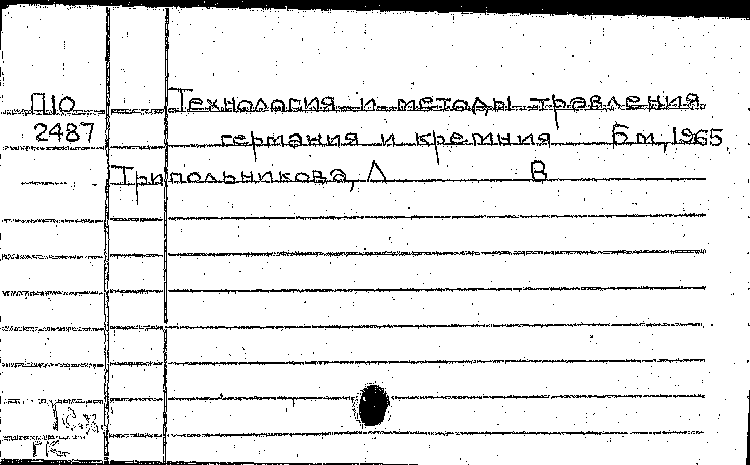 П10 Технология и методы травления
2487 германия и кремния Б м, 1965
Трипольникова, Л В
ГК